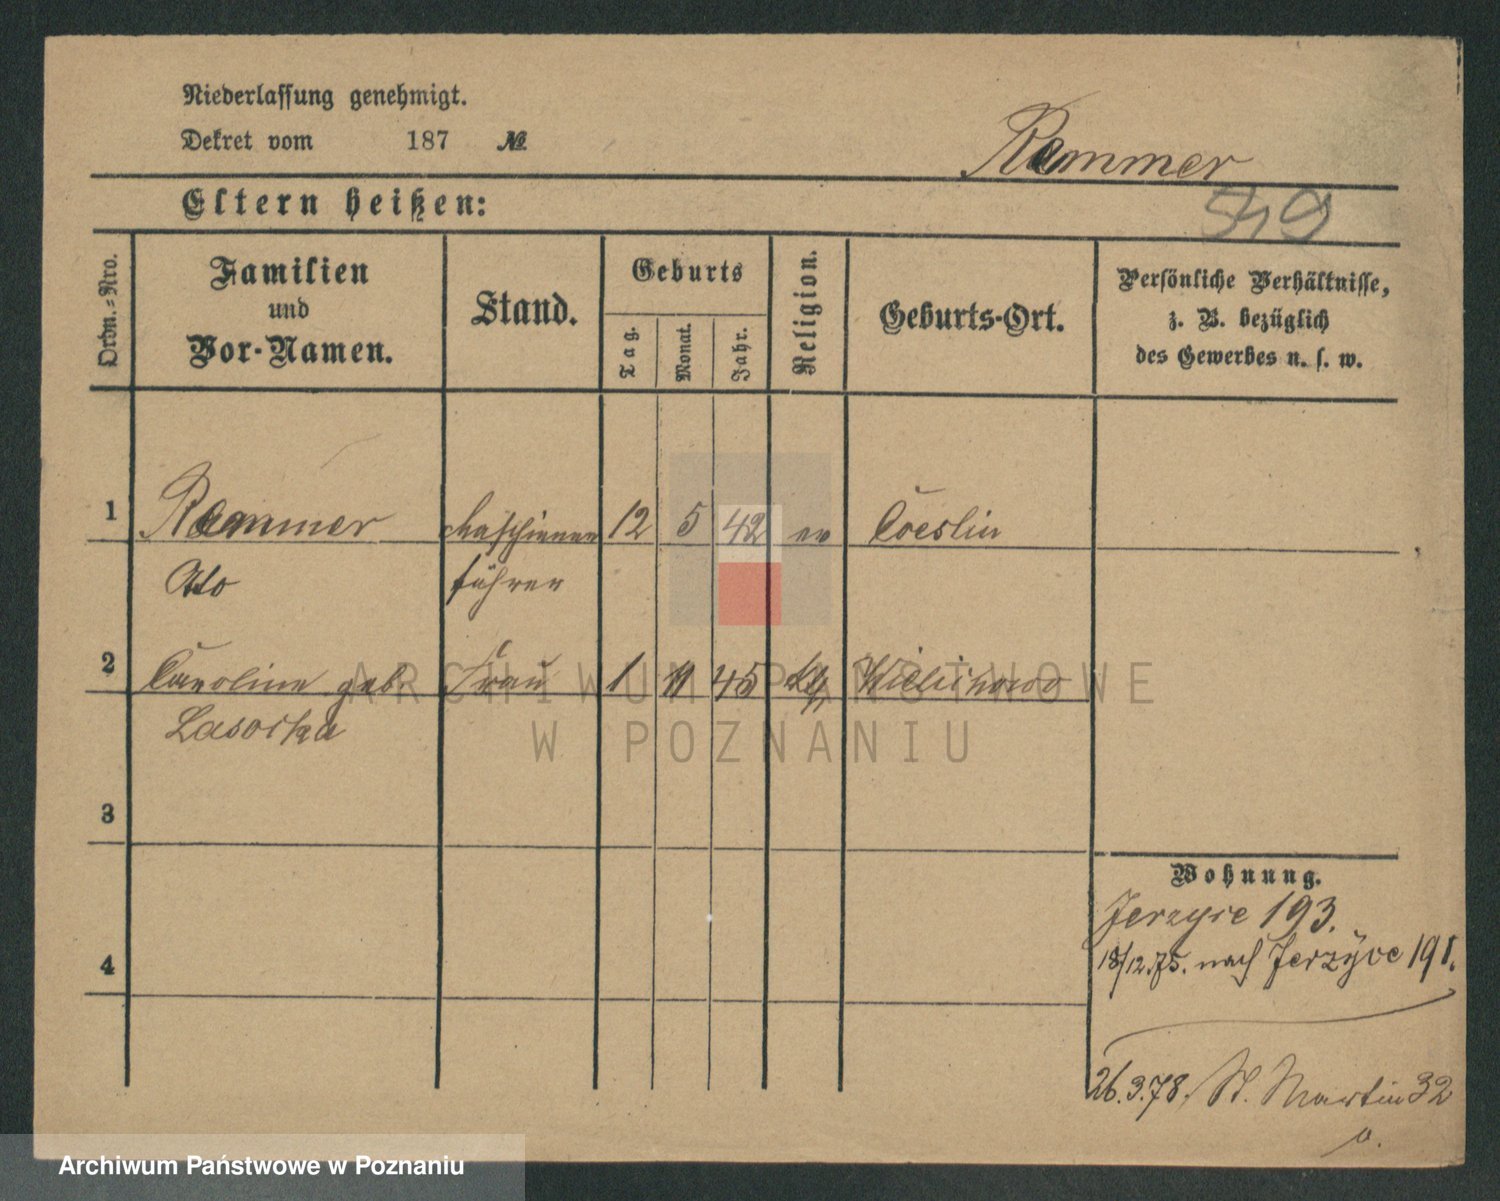 Niederlassung genehmigt.
Dekret vom 187 №
Rammer
549
Eltern heißen:
Ordn.-Nro.
Familien
und
Vor-Namen.
Stand.
Geburts
Tag.
Monat.
Jahr.
Religion.
Geburts-Ort.
Persönliche Verhältnisse,
z. B. bezüglich
des Gewerbes u. s. w.
1 Rammer Maschinen 12 5 42 ev Coeslin
Otto führer
2 Caroline geb. Frau 1 11 45 kth
Lasocka
3
4
Wohnung.
Jerzyce 193.
18/12.75. nach Jerzyce 191.
26.3.78. St. Martin 32
ARCHIWUM PAŃSTWOWE
W POZNANIU
Archiwum Państwowe w Poznaniu